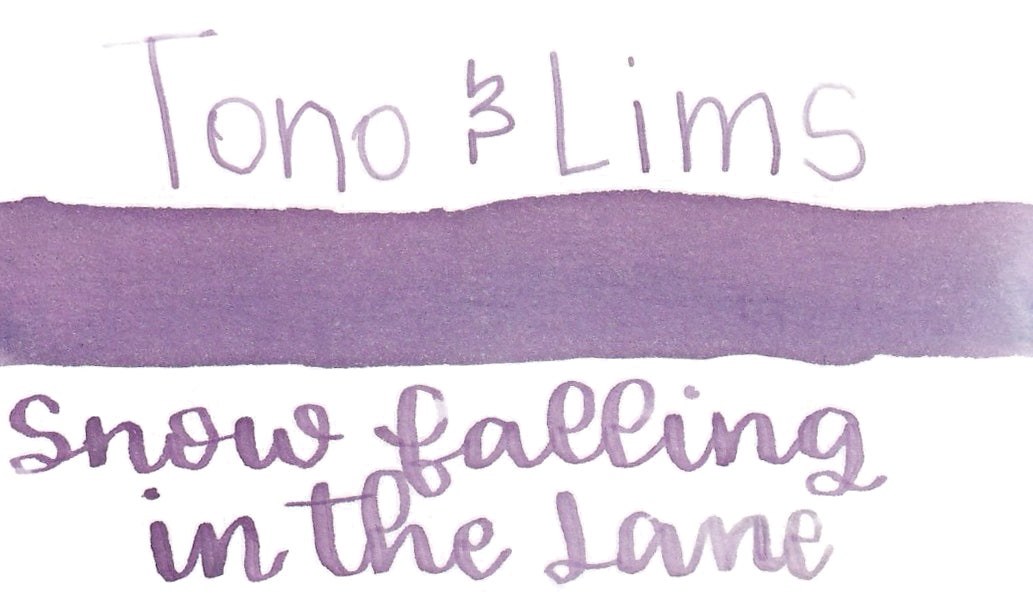 Tono & Lims
Snow falling
in the Lane